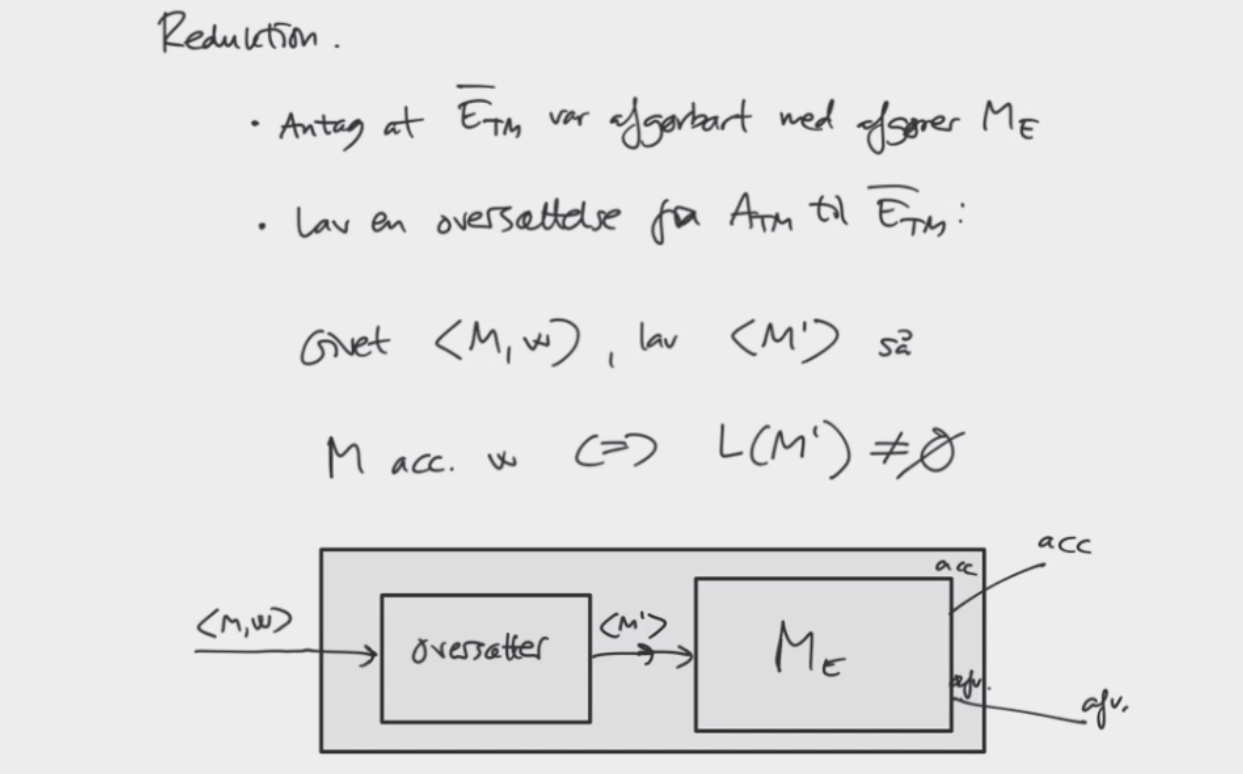 Reduktion.
· Antag at \overline{E_{TM}} var afgørbart med afgører M_E
· Lav en oversættelse fra A_{TM} til \overline{E_{TM}}:
Givet <M, w>, lav <M'> så
M acc. w <=> L(M') ≠ ∅
acc
acc
<M, w>
oversætter
<M'>
M_E
afv.
afv.